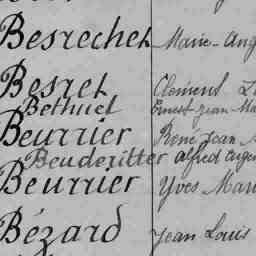 Besrechet Marie-Ang
Besret Clément L
Bethuel Ernest Jean Ma
Beurrier René Jean
Beuderitter Alfred Eugen
Beurrier Yves Mari
Bézard Jean Louis